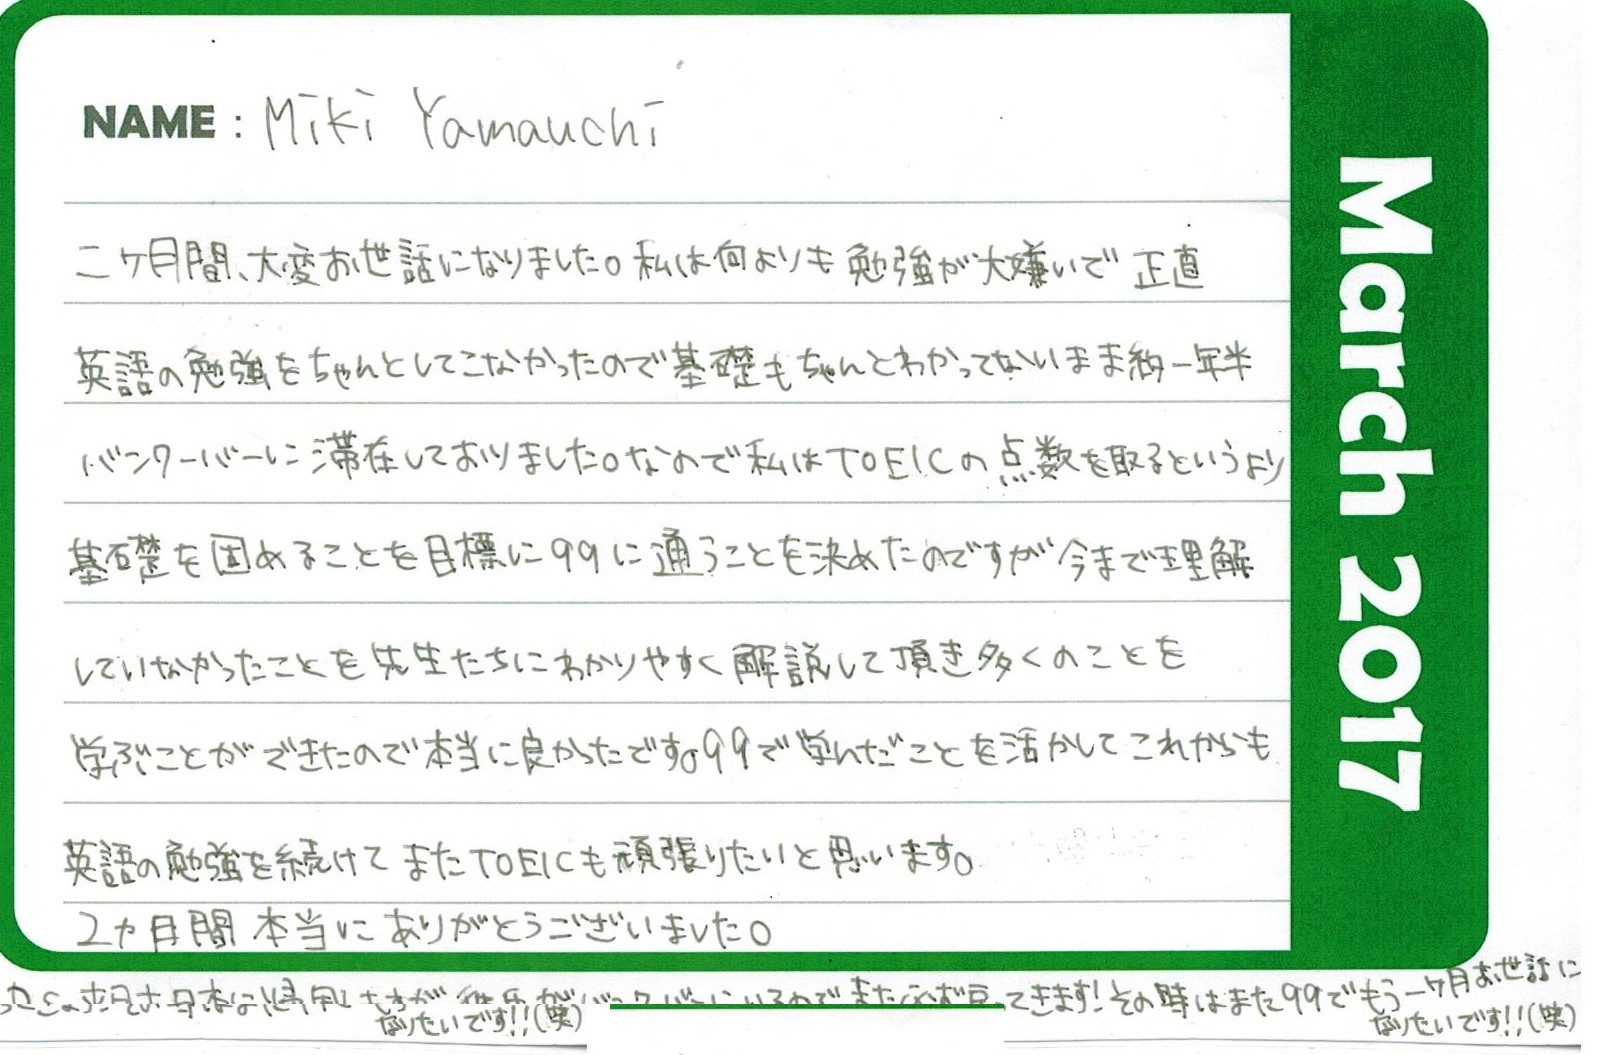 NAME : Miki Yamauchi
二ヶ月間、大変お世話になりました。私は何よりも勉強が大嫌いで正直
英語の勉強をちゃんとしてこなかったので基礎もちゃんとわかってないまま約一年半
バンクーバーに滞在しておりました。なので私はTOEICの点数を取るというより
基礎を固めることを目標に99に通うことを決めたのですが今まで理解
していなかったことを先生たちにわかりやすく解説して頂き多くのことを
学ぶことができたので本当に良かったです。99で学んだことを活かしてこれからも
英語の勉強を続けてまたTOEICも頑張りたいと思います。
2ヶ月間本当にありがとうございました。
バンクーバーにいるのでまた必ず戻ってきます!その時はまた99でもう一ヶ月お世話に
なりたいです!!(笑)
なりたいです!!(笑)
March 2017